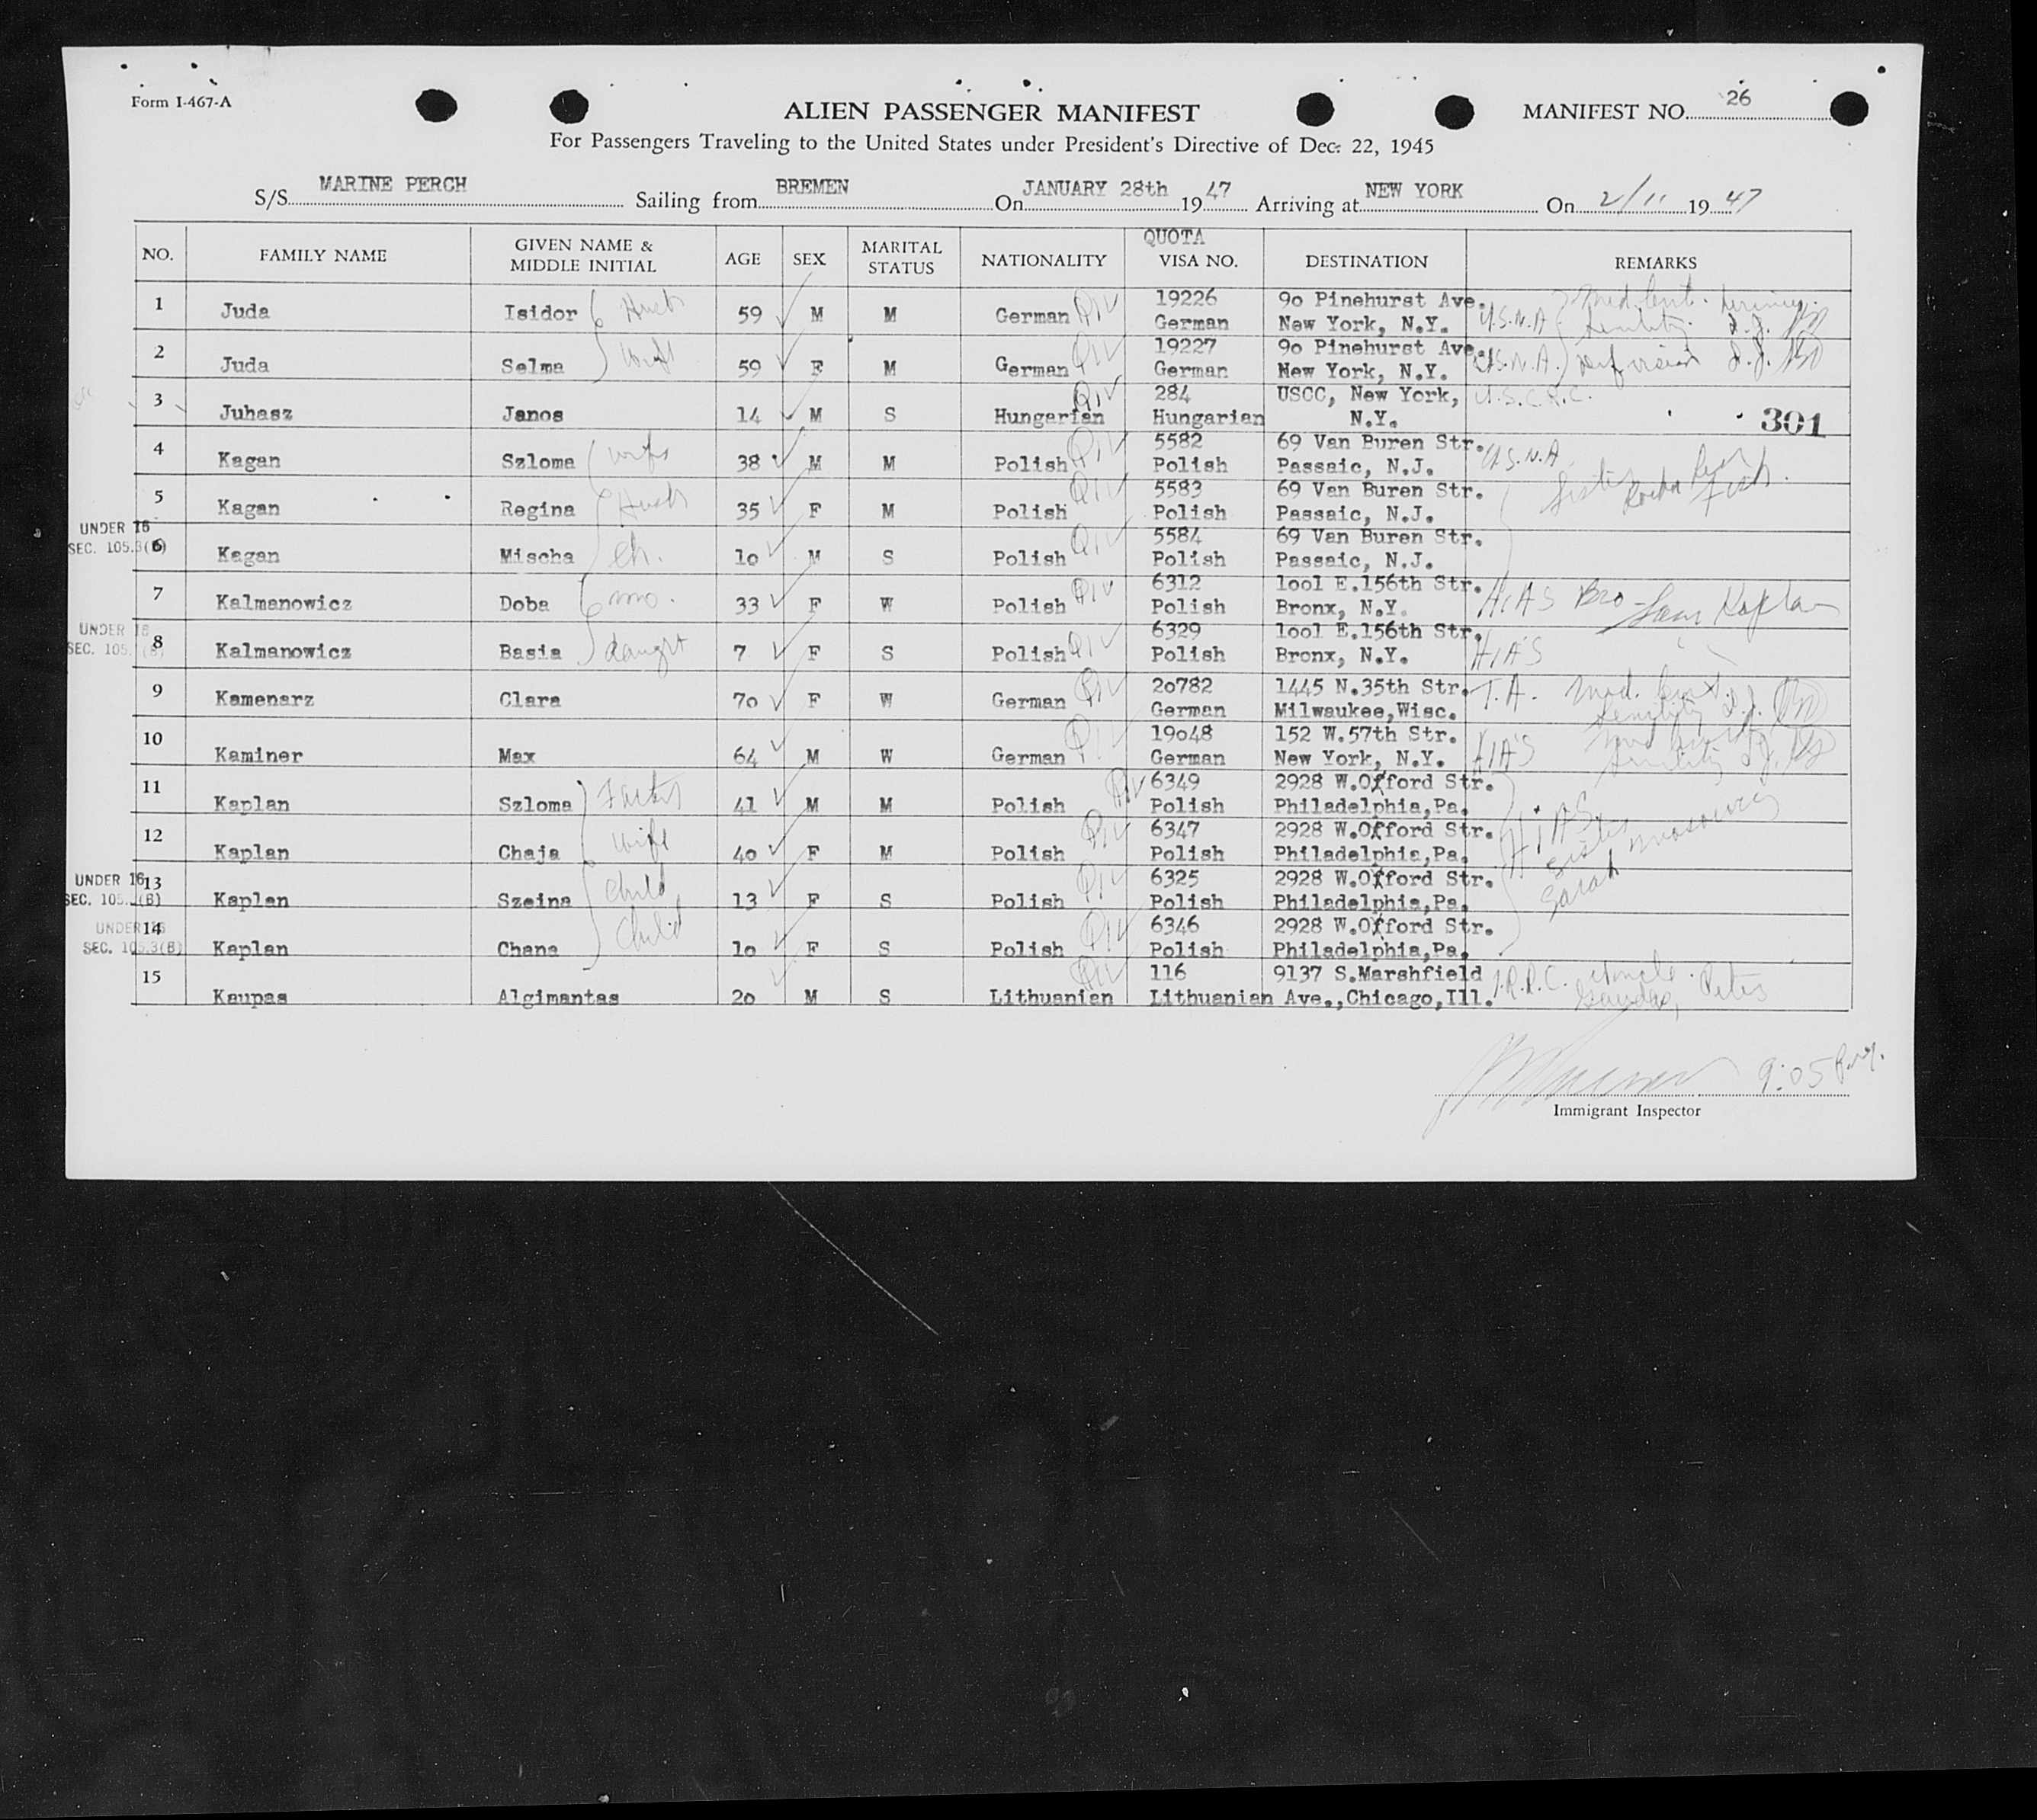 Form I-467-A
ALIEN PASSENGER MANIFEST
MANIFEST NO. 26
For Passengers Traveling to the United States under President's Directive of Dec. 22, 1945
S/S MARINE PERCH Sailing from BREMEN On JANUARY 28th 19 47 Arriving at NEW YORK On 2/11 19 47
NO. FAMILY NAME GIVEN NAME & MIDDLE INITIAL AGE SEX MARITAL STATUS NATIONALITY QUOTA VISA NO. DESTINATION REMARKS
1 Juda Isidor Husb 59 M M German QIV 19226 German 90 Pinehurst Ave. New York, N.Y. U.S.N.A Med. Cert. Senility
2 Juda Selma wife 59 F M German QIV 19227 German 90 Pinehurst Ave. New York, N.Y. U.S.N.A. Def vision
3 Juhasz Janos 14 M S Hungarian QIV 284 Hungarian USCC, New York, N.Y. U.S.C.R.C. 301
4 Kagan Szloma wife 38 M M Polish QIV 5582 Polish 69 Van Buren Str. Passaic, N.J. U.S.N.A. Sister
5 Kagan Regina Husb 35 F M Polish QIV 5583 Polish 69 Van Buren Str. Passaic, N.J.
UNDER 16 SEC. 105.3(B)
6 Kagan Mischa ch. 10 M S Polish QIV 5584 Polish 69 Van Buren Str. Passaic, N.J.
7 Kalmanowicz Doba mo. 33 F W Polish QIV 6312 Polish 1001 E.156th Str. Bronx, N.Y. HIAS Bro - Sam Kaplan
UNDER 16 SEC. 105.3(B)
8 Kalmanowicz Basia daught 7 F S Polish QIV 6329 Polish 1001 E.156th Str. Bronx, N.Y. HIAS
9 Kamenarz Clara 70 F W German QIV 20782 German 1445 N.35th Str. Milwaukee,Wisc. T.A. Med. Cert. Senility
10 Kaminer Max 64 M W German QIV 19048 German 152 W.57th Str. New York, N.Y. HIAS Med Cert Senility
11 Kaplan Szloma Father 41 M M Polish QIV 6349 Polish 2928 W.Oxford Str. Philadelphia,Pa.
12 Kaplan Chaja wife 40 F M Polish QIV 6347 Polish 2928 W.Oxford Str. Philadelphia,Pa. HIAS Sister Sarah
UNDER 16 SEC. 105.3(B)
13 Kaplan Szeina child 13 F S Polish QIV 6325 Polish 2928 W.Oxford Str. Philadelphia,Pa.
UNDER 16 SEC. 105.3(B)
14 Kaplan Chana child 10 F S Polish QIV 6346 Polish 2928 W.Oxford Str. Philadelphia,Pa.
15 Kaupas Algimantas 20 M S Lithuanian QIV 116 Lithuanian 9137 S.Marshfield Ave.,Chicago,Ill. Uncle Peter
9:05
Immigrant Inspector